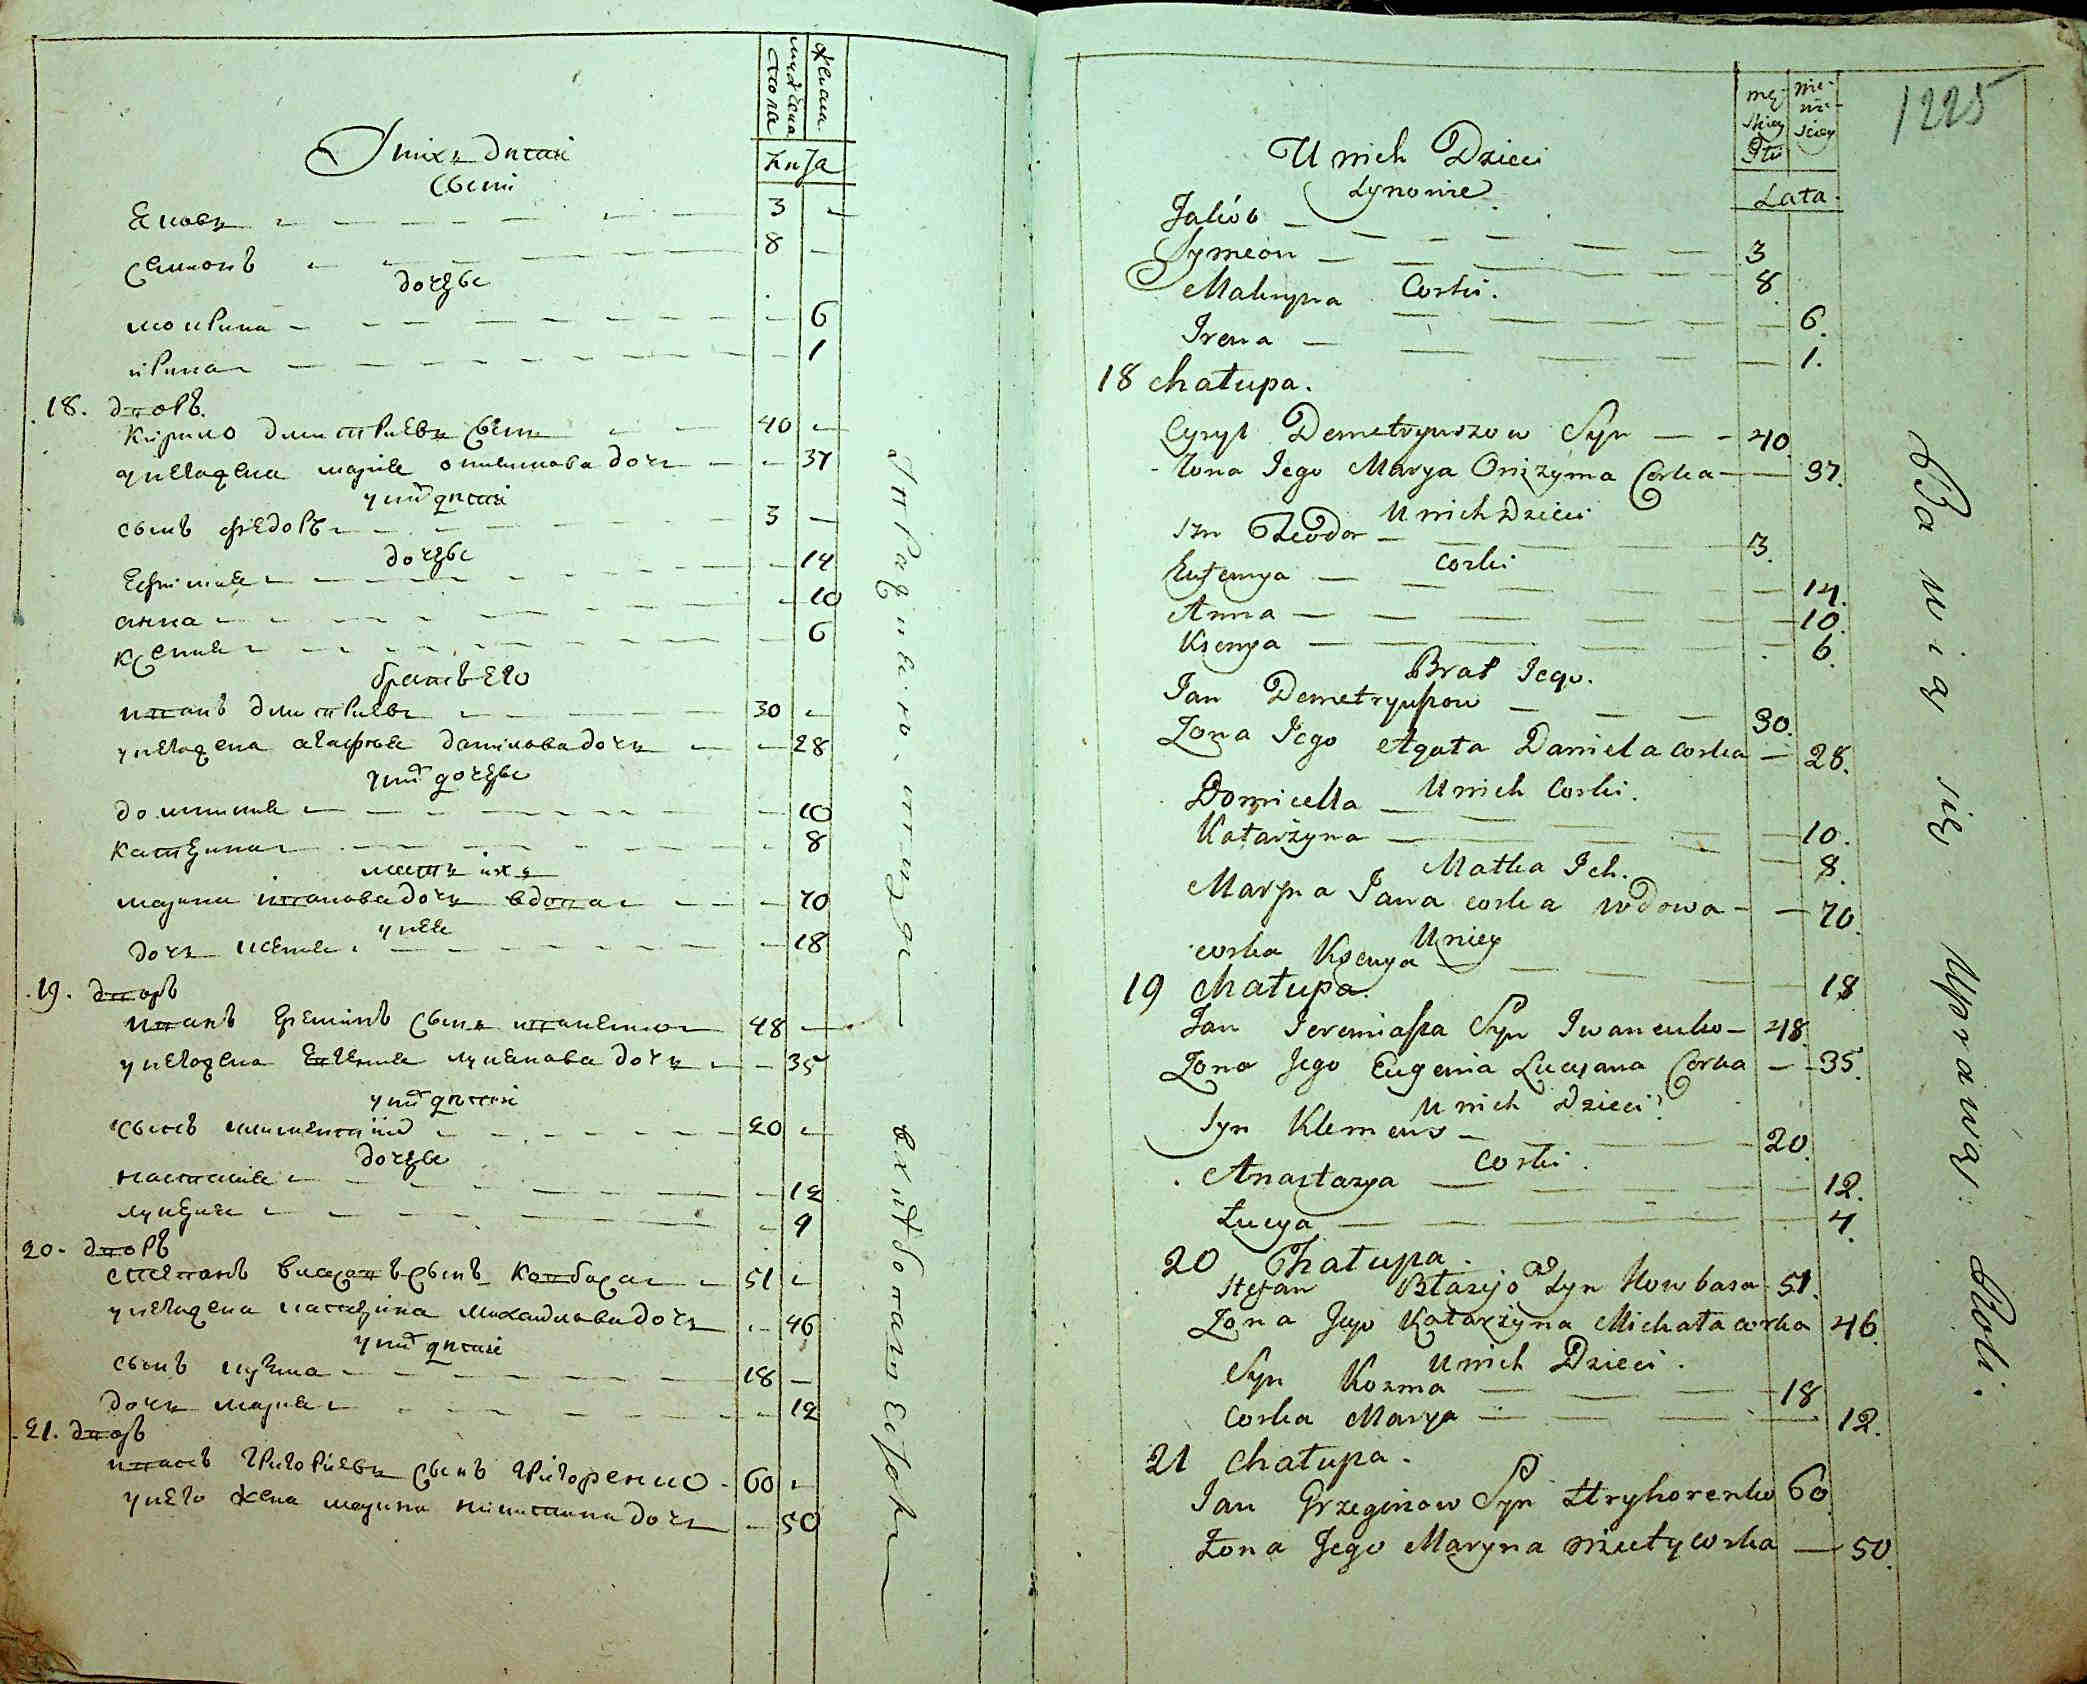 мужеска
пола
женска
лѣта
У нихъ дѣти
сыны
Яковъ 3
Семионъ 8
дочери
Мокрина 6
Ирина 1
18. дворъ.
Кирило Дмитриевъ сынъ 40
у него жена Мария Онисимова дочь 37
у них дѣти
сынъ Федоръ 3
дочери
Ефимия 14
Анна 10
Ксения 6
братъ его
Иванъ Дмитриевъ 30
у него жена Агафия Данилова дочь 28
у них дочери
Домникия 10
Катерина 8
мать ихъ
Марина Иванова дочь вдова 70
у нее
дочь Ксения 18
19. дворъ
Иванъ Еремѣинъ сынъ Иваненко 48
у него жена Евгения Лукянова дочь 35
у них дѣти
сынъ Климентий 20
дочери
Настасия 12
Лукерия 4
20. дворъ
Степанъ Власовъ сынъ Ковбаса 51
у него жена Катерина Михайлова дочь 46
у них дѣти
сынъ Кузма 18
дочь Мария 12
21. дворъ
Иванъ Григориевъ сынъ Григоренко 60
у него жена Марина Никитина дочь 50
1225
męzkiey Płci
nie wiesciey
Lata.
U nich Dzieci
Synowie
Jakób
Symeon 3
Makryna Corki. 8
6.
Irena
1.
18 Chałupa.
Cyryl Demetryuszow Syn 40
Zona Jego Marya Onizyma Corka 37.
U nich Dzieci
Syn Teodor 3.
Corki
Eufemya 14.
Anna 10.
Ksenya 6.
Brat Jego.
Jan Demetryuszow 30.
Zona Jego Agata Daniela Corka 28.
U nich Corki.
Domicella 10.
Katarzyna 8.
Matka Ich.
Maryna Jana corka wdowa 70.
U niey
corka Ksenya 18
19 Chałupa.
Jan Jeremiasza Syn Iwanenko 48.
Zona Jego Eugenia Lucyana Corka 35.
U nich Dzieci
Syn Klemens 20.
Corki.
Anastazya 12.
Łucya 4.
20 Chałupa.
Stefan Błazejow Syn Kowbasa 51.
Zona Jego Katarzyna Michała corka 46.
U nich Dzieci.
Syn Kozma 18
Corka Marya 12.
21 Chałupa.
Jan Grzegorzow Syn Hryhorenko 60.
Zona Jego Maryna Mikity Corka 50.
Bawią się Uprawą Roli.